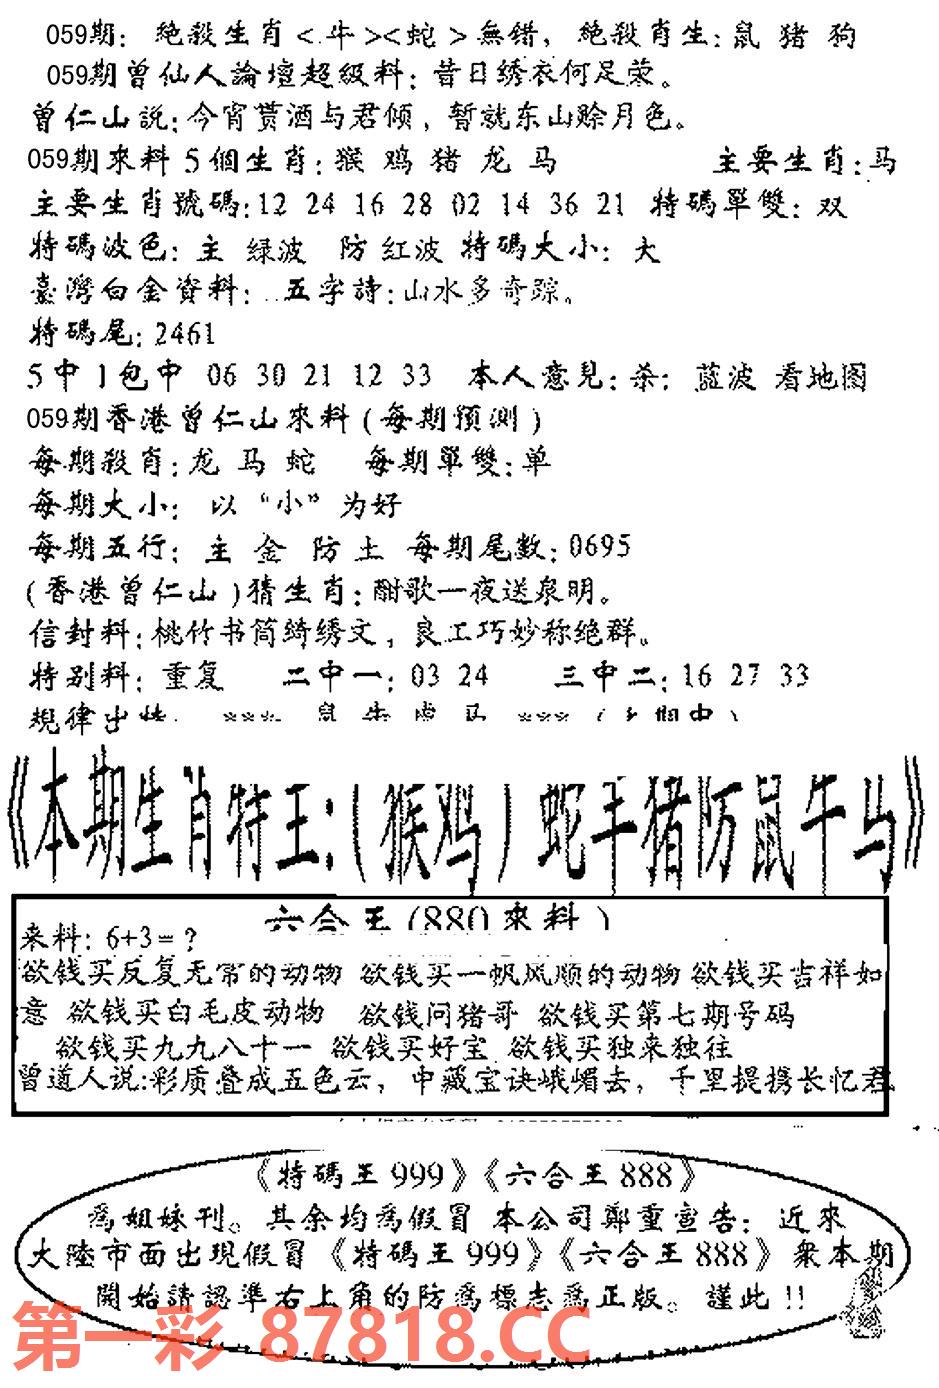 059期: 絶殺生肖<牛><蛇>無错, 絶殺肖生: 鼠 猪 狗
059期曾仙人論壇超級料: 昔日绣衣何足荣。
曾仁山説: 今宵贳酒与君倾, 暂就东山赊月色。
059期來料 5個生肖: 猴 鸡 猪 龙 马 主要生肖: 马
主要生肖號碼: 12 24 16 28 02 14 36 21 特碼單雙: 双
特碼波色: 主 绿波 防 红波 特碼大小: 大
臺灣白金資料: 五字詩: 山水多奇踪。
特碼尾: 2461
5中1包中 06 30 21 12 33 本人意見: 杀: 蓝波 看地图
059期香港曾仁山來料(每期預測)
每期殺肖: 龙 马 蛇 每期單雙: 单
每期大小: 以“小”为好
每期五行: 主 金 防 土 每期尾数: 0695
(香港曾仁山)猜生肖: 酣歌一夜送泉明。
信封料: 桃竹书筒绮绣文, 良工巧妙称绝群。
特别料: 重复 二中一: 03 24 三中二: 16 27 33
規律出特: *** 鼠 牛 虎 马 ***
《本期生肖特王:(猴鸡)蛇羊猪防鼠牛马》
六合王(880來料)
来料: 6+3=?
欲钱买反复无常的动物 欲钱买一帆风顺的动物 欲钱买吉祥如
意 欲钱买白毛皮动物 欲钱问猪哥 欲钱买第七期号码
欲钱买九九八十一 欲钱买好宝 欲钱买独来独往
曾道人说:彩质叠成五色云, 中藏宝诀峨嵋去, 千里提携长忆君
《特碼王999》《六合王888》
爲姐妹刊。其余均爲假冒 本公司鄭重宣告: 近來
大陸市面出現假冒《特碼王999》《六合王888》衆本期
開始請認準右上角的防爲標志爲正版。謹此!!
第一彩 87818.CC